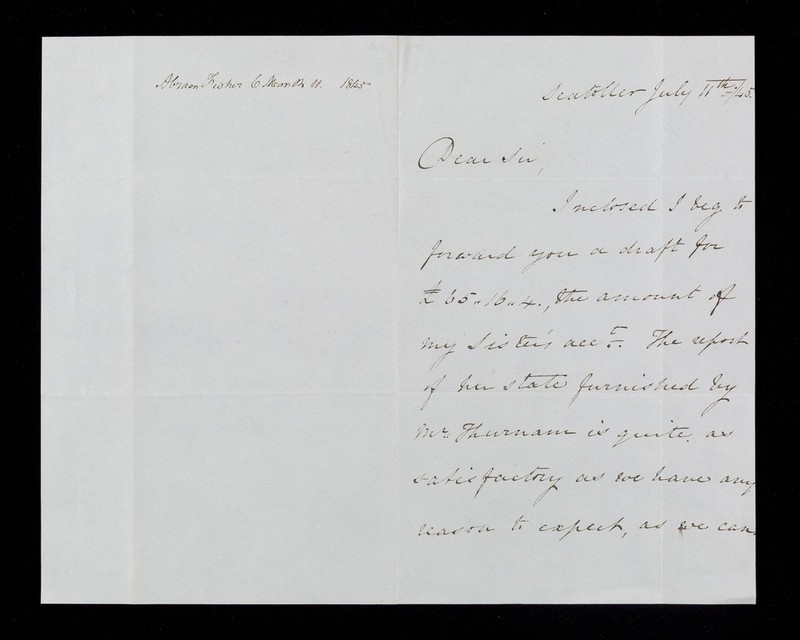 Abram Fisher 6 Month 11. 1845
Seatoller July 11th /45.
Dear Sir,
Inclosed I beg to
forward you a draft for
£65.,16.,4., the amount of
my Sister's acct. The report
of her state furnished by
Mr. Thurnam is quite as
satisfactory as we have any
reason to expect, as we can